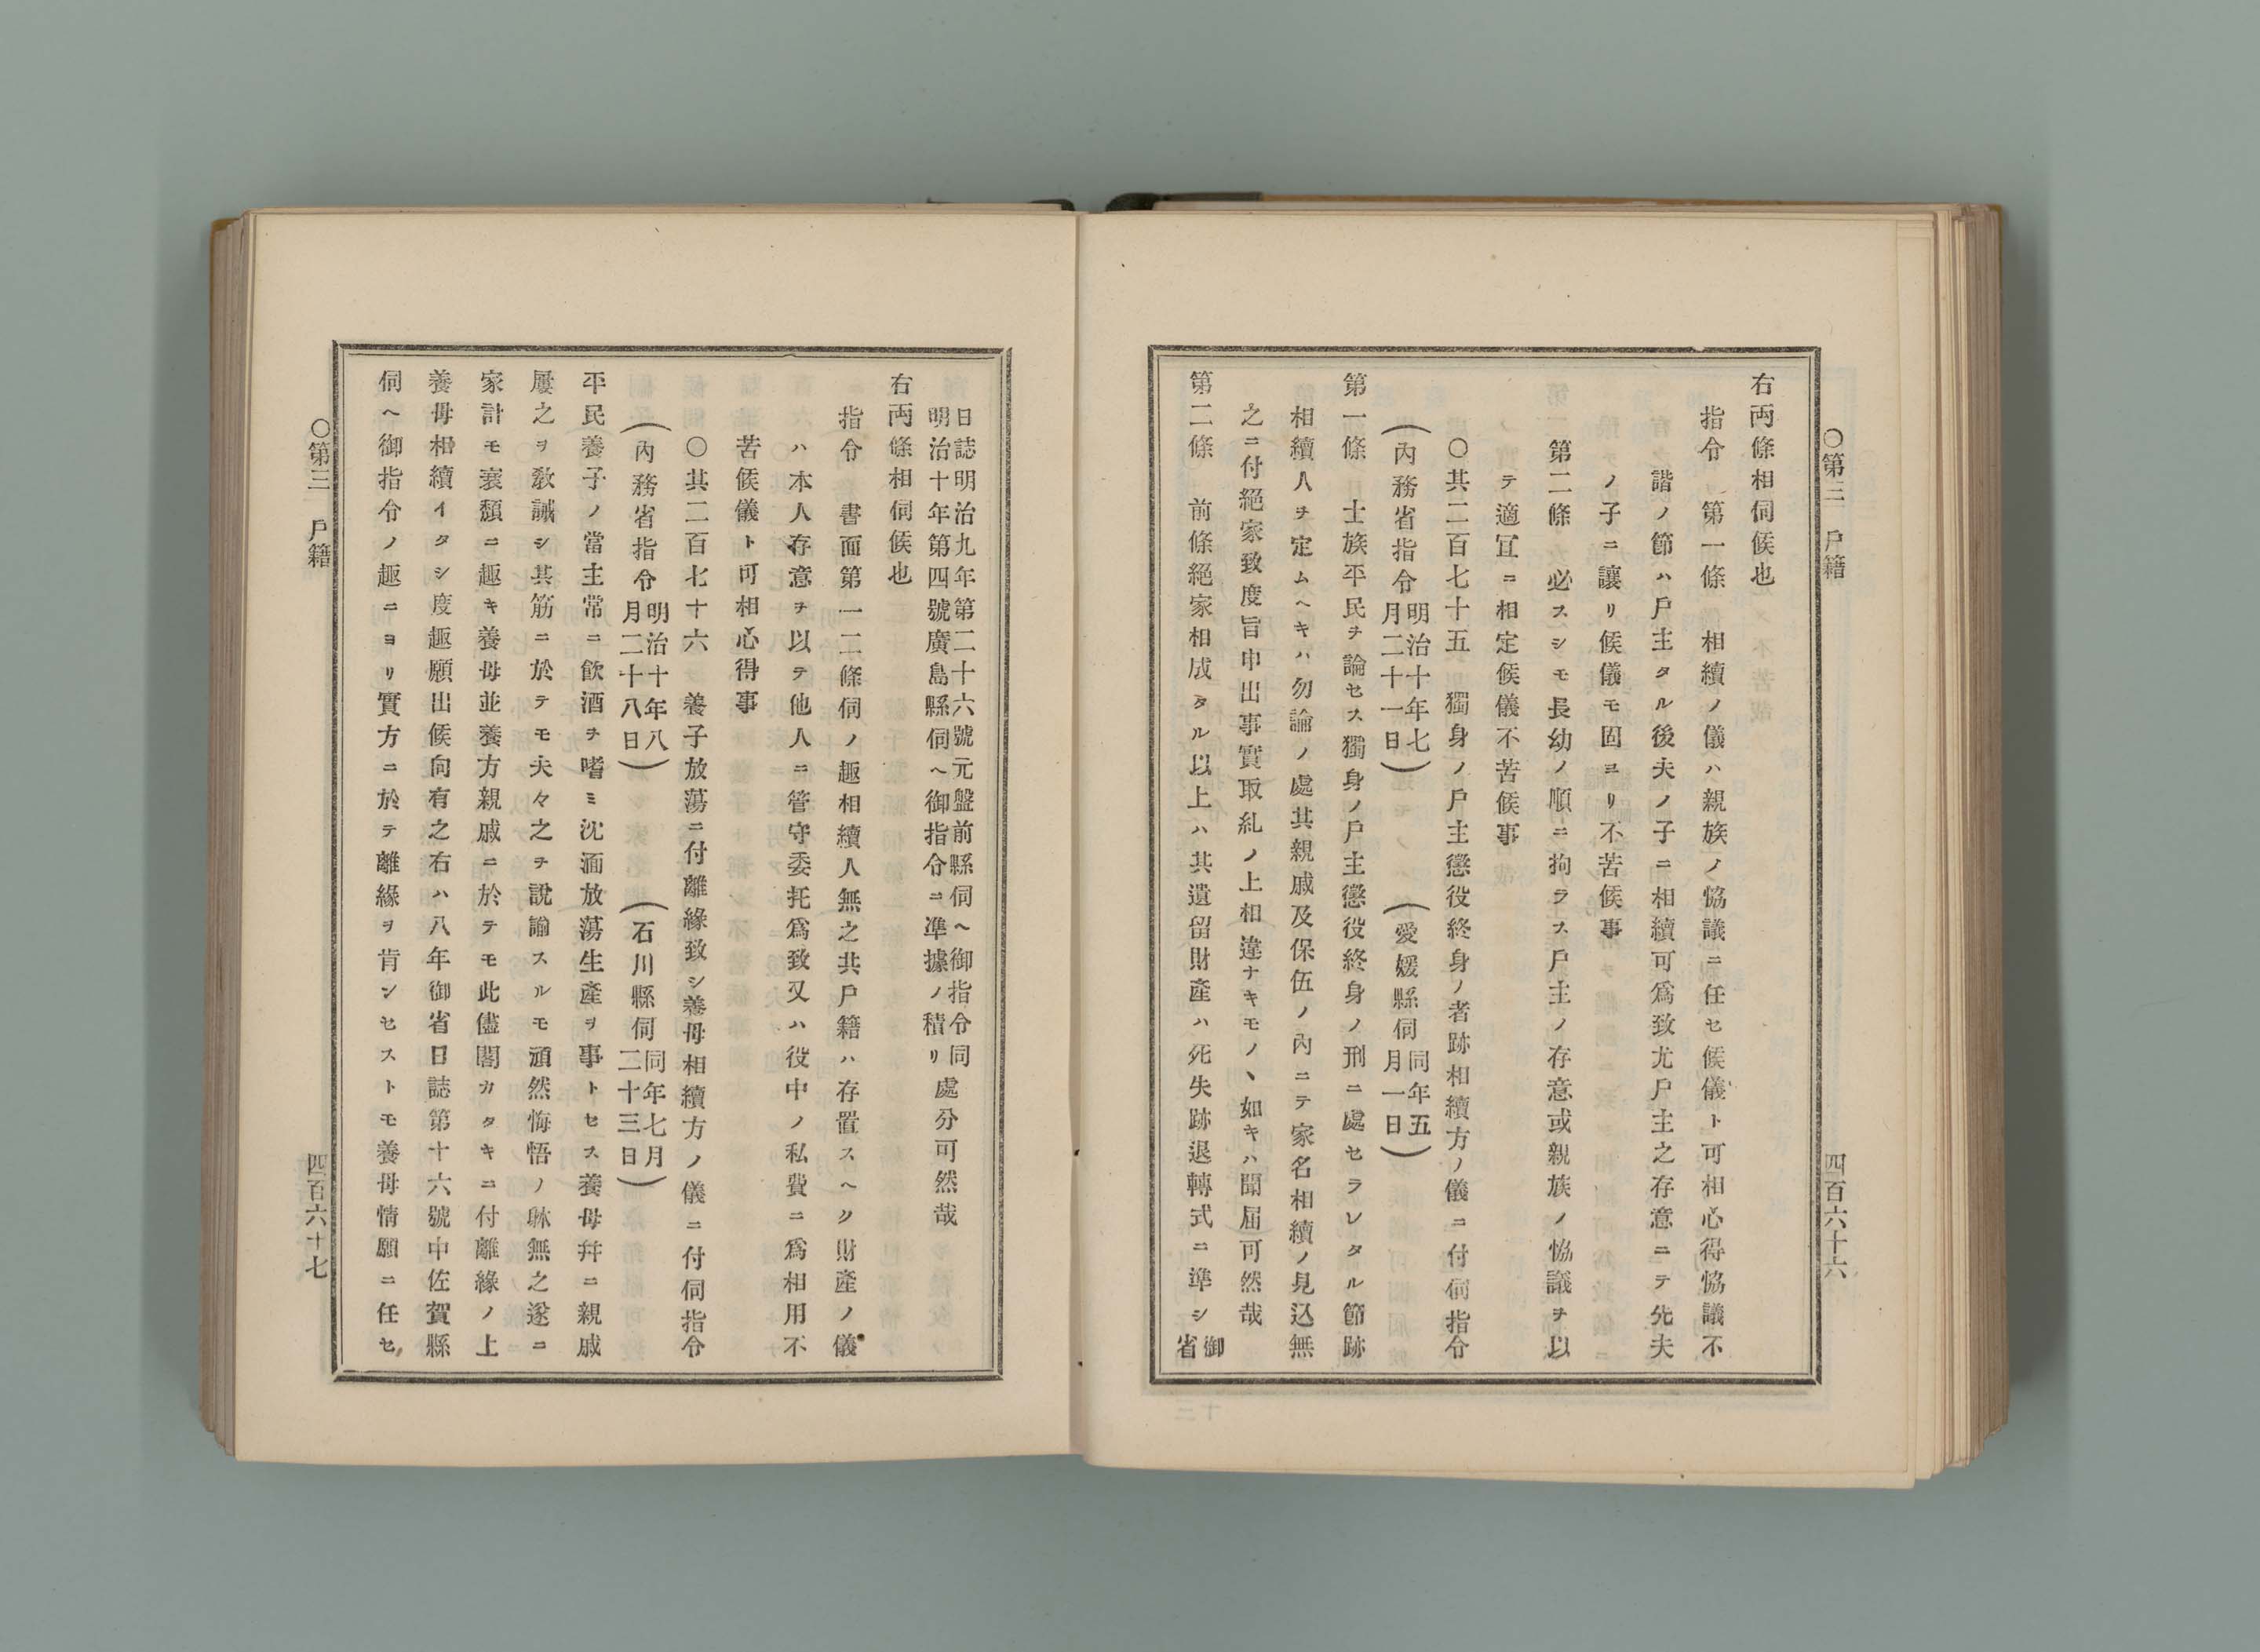 〇第三　戸籍　四百六十六
右両條相伺候也
指令　第一條　相續ノ儀ハ親族ノ恊議ニ任セ候儀ト可相心得恊議不
諧ノ節ハ戸主タル後夫ノ子ニ相續可爲致尤戸主之存意ニテ先夫
ノ子ニ讓リ候儀モ固ヨリ不苦候事
第二條　必スシモ長幼ノ順ニ拘ラス戸主ノ存意或親族ノ恊議ヲ以
テ適冝ニ相定候儀不苦候事
〇其二百七十五　獨身ノ戸主懲役終身ノ者跡相續方ノ儀ニ付伺指令
（內務省指令明治十年七月二十一日）　（愛媛縣伺同年五月一日）
第一條　士族平民ヲ論セス獨身ノ戸主懲役終身ノ刑ニ處セラレタル節跡
相續人ヲ定ムヘキハ勿論ノ處其親戚及保伍ノ內ニテ家名相續ノ見込無
之ニ付絕家致度旨申出事實取糺ノ上相違ナキモノヽ如キハ聞届可然哉
第二條　前條絕家相成タル以上ハ其遺留財產ハ死失跡退轉式ニ準シ御省
日誌明治九年第二十六號元盤前縣伺ヘ御指令同
明治十年第四號廣島縣伺ヘ御指令ニ準據ノ積リ處分可然哉
右両條相伺候也
指令　書面第一二條伺ノ趣相續人無之共戸籍ハ存置スヘク財產ノ儀
ハ本人存意ヲ以テ他人ニ管守委托爲致又ハ役中ノ私費ニ爲相用不
苦候儀ト可相心得事
〇其二百七十六　養子放蕩ニ付離緣致シ養母相續方ノ儀ニ付伺指令
（內務省指令明治十年八月二十八日）　（石川縣伺同年七月二十三日）
平民養子ノ當主常ニ飮酒ヲ嗜ミ沈湎放蕩生產ヲ事トセス養母幷ニ親戚
屢之ヲ敎誡シ其筋ニ於テモ夫々之ヲ說諭スルモ頑然悔悟ノ躰無之遂ニ
家計モ衰頽ニ趣キ養母並養方親戚ニ於テモ此儘閣カタキニ付離緣ノ上
養母相續イタシ度趣願出候向有之右ハ八年御省日誌第十六號中佐賀縣
伺ヘ御指令ノ趣ニヨリ實方ニ於テ離緣ヲ肯ンセストモ養母情願ニ任セ
〇第三　戸籍　四百六十七